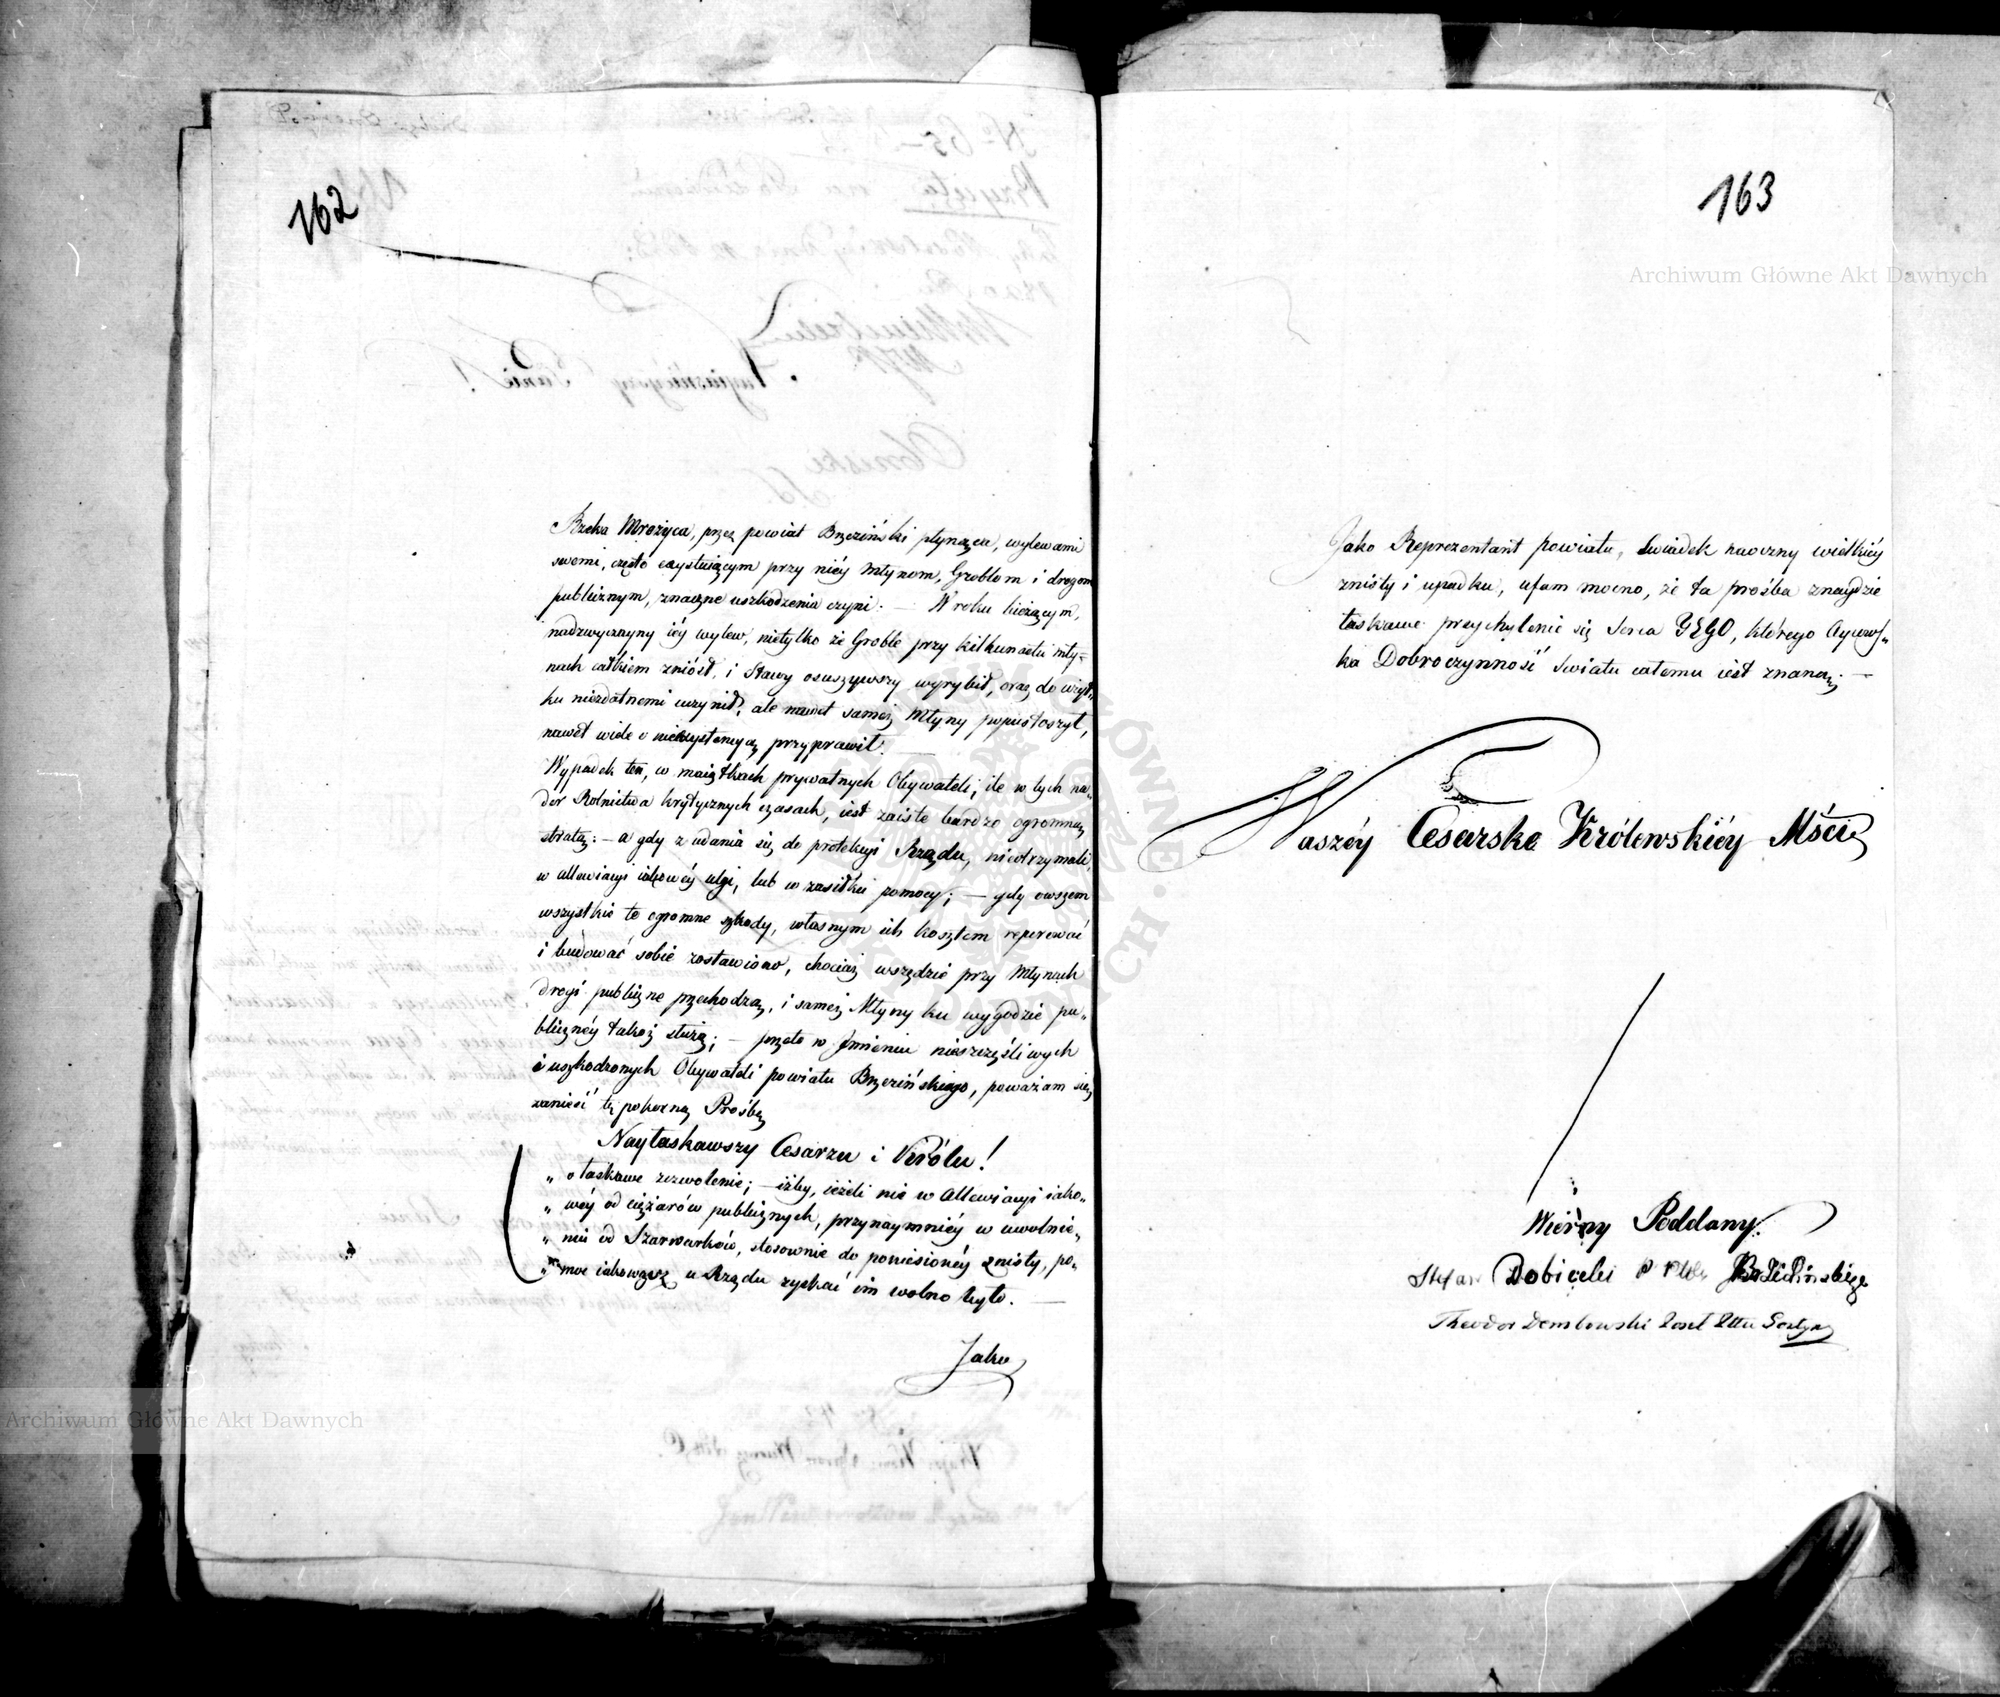 162
Rzeka Mrożyca, przez powiat Brzeziński płynąca, wylewami
swemi, często exystuiącym przy niéy Młynom, Groblom i drogom
publicznym, znaczne uszkodzenia czyni. — W roku bieżącym,
nadzwyczayny iéy wylew, nietylko że Groble przy kilkunastu mły=
nach całkiem zniósł, i Stawy osuszywszy wyrybił, oraz do użyt„
ku niezdatnemi uczynił, ale nawet sameż Młyny popustoszył,
nawet wiele o nieexystencyą przyprawił. —
Wypadek ten, w maiątkach prywatnych Obywateli, ile w tych na„
der Rolnictwa krytycznych czasach, iest zaiste bardzo ogromną
stratą: — a gdy z udania się do protekcyi Rządu, nieotrzymali,
w allewiacyi iakowéy ulgi, lub w zasiłku pomocy; — gdy owszem
wszystkie te ogromne szkody, własnym ich kosztem reperować
i budować sobie zostawiono, chociaż wszędzie przy Młynach
drogi publiczne przechodzą, i sameż Młyny ku wygodzie pu„
blicznéy takoż służą; — przeto w Jmieniu nieszczęśliwych
i uszkodzonych Obywateli powiatu Brzezińskiego, poważam się
zanieść tę pokorną Prośbę
Nayłaskawszy Cesarzu i Królu!
„ o łaskawe zezwolenie; — iżby, ieżeli nie w allewiacyi iako„
„ wéy od ciężarów publicznych, przynaymniéy w uwolnie„
„ niu od Szarwarków, stosownie do poniesionéy zniszty, po„
„ moc iakowąż u Rządu zyskać im wolno było. —
Jako
163
Archiwum Główne Akt Dawnych
Jako Reprezentant powiatu, świadek naoczny wielkiéy
zniszty i upadku, ufam mocno, że ta prośba znaydzie
łaskawe przychylenie się Serca JEGO, którego Oycows„
ka Dobroczynność Światu całemu iest znaną; —
Waszéy Cesarsko Królewskiéy Mści
Wierny Poddany.
Stefan Dobiecki
Theodor Dembowski
Archiwum Główne Akt Dawnych